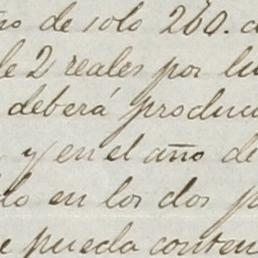 de solo 260.
de 2 reales por
deberá produc
y en el año de
en los dos p
e pueda conten